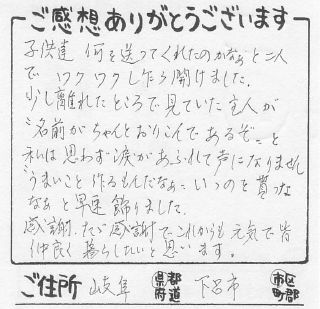 ご感想ありがとうございます
子供達 何を送ってくれたのかなぁと二人
で ワクワクし乍ら開けました。
少し離れたところで見ていた主人が
"名前がちゃんとおりこんであるぞ〟と
私は思わず涙があふれて声になりません
"うまいこと 作るもんだなぁ〟いつのと貰った
なぁと早速 飾りました。
感謝、ただ感謝でこれからも元気で皆
仲良く暮らしたいと思います。
ご住所 岐阜 都道府県 下呂市 区郡市町